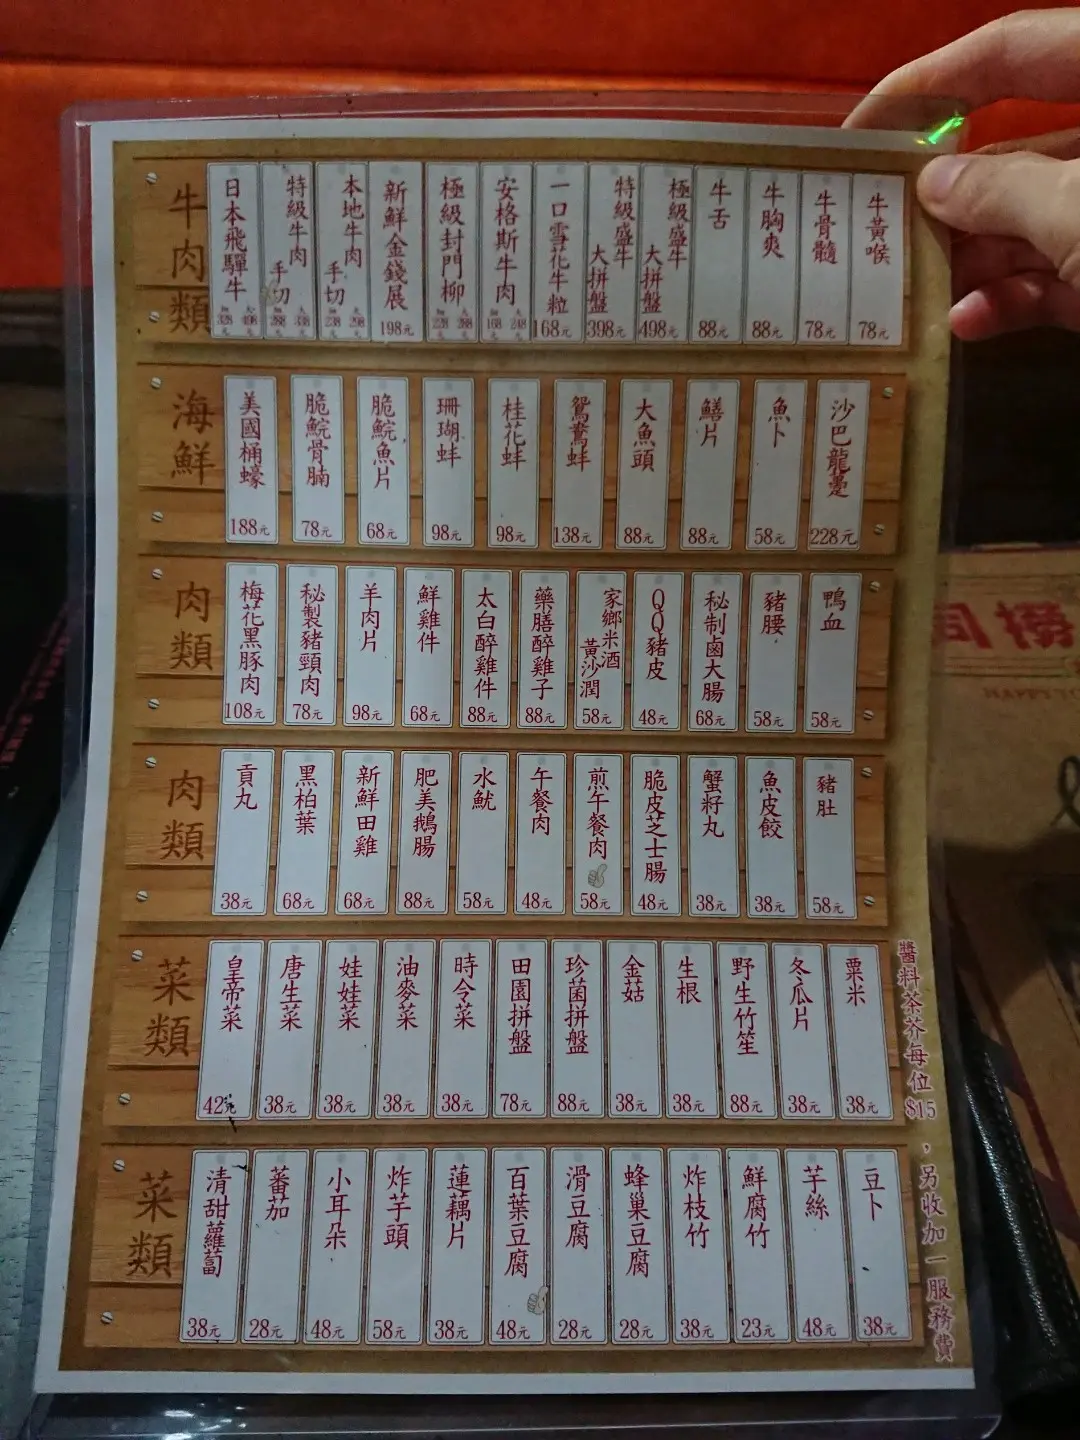 牛肉類
日本飛驒牛
特級牛肉 手切
本地牛肉 手切
新鮮金錢展 198元
極級封門柳
安格斯牛肉
一口雪花牛粒 168元
特級盛牛 大拼盤 398元
極級盛牛 大拼盤 498元
牛舌 88元
牛胸爽 88元
牛骨髓 78元
牛黃喉 78元
海鮮
美國桶蠔 188元
脆鯇骨腩 78元
脆鯇魚片 68元
珊瑚蚌 98元
桂花蚌 98元
鴛鴦蚌 138元
大魚頭 88元
鱔片 88元
魚卜 58元
沙巴龍躉 228元
肉類
梅花黑豚肉 108元
秘製豬頸肉 78元
羊肉片 98元
鮮雞件 68元
太白醉雞件 88元
藥膳醉雞子 88元
家鄉米酒 黃沙潤 58元
QQ豬皮 48元
秘制鹵大腸 68元
豬腰 58元
鴨血 58元
肉類
貢丸 38元
黑柏葉 68元
新鮮田雞 68元
肥美鵝腸 88元
水魷 58元
午餐肉 48元
煎午餐肉 58元
脆皮芝士腸 48元
蟹籽丸 38元
魚皮餃 38元
豬肚 58元
菜類
皇帝菜 42元
唐生菜 38元
娃娃菜 38元
油麥菜 38元
時令菜 38元
田園拼盤 78元
珍菌拼盤 88元
金菇 38元
生根 38元
野生竹笙 88元
冬瓜片 38元
粟米 38元
菜類
清甜蘿蔔 38元
蕃茄 28元
小耳朵 48元
炸芋頭 58元
蓮藕片 38元
百葉豆腐 48元
滑豆腐 28元
蜂巢豆腐 28元
炸枝竹 38元
鮮腐竹 23元
芋絲 48元
豆卜 38元
醬料茶芥每位$15，另收加一服務費
HAPPY TO